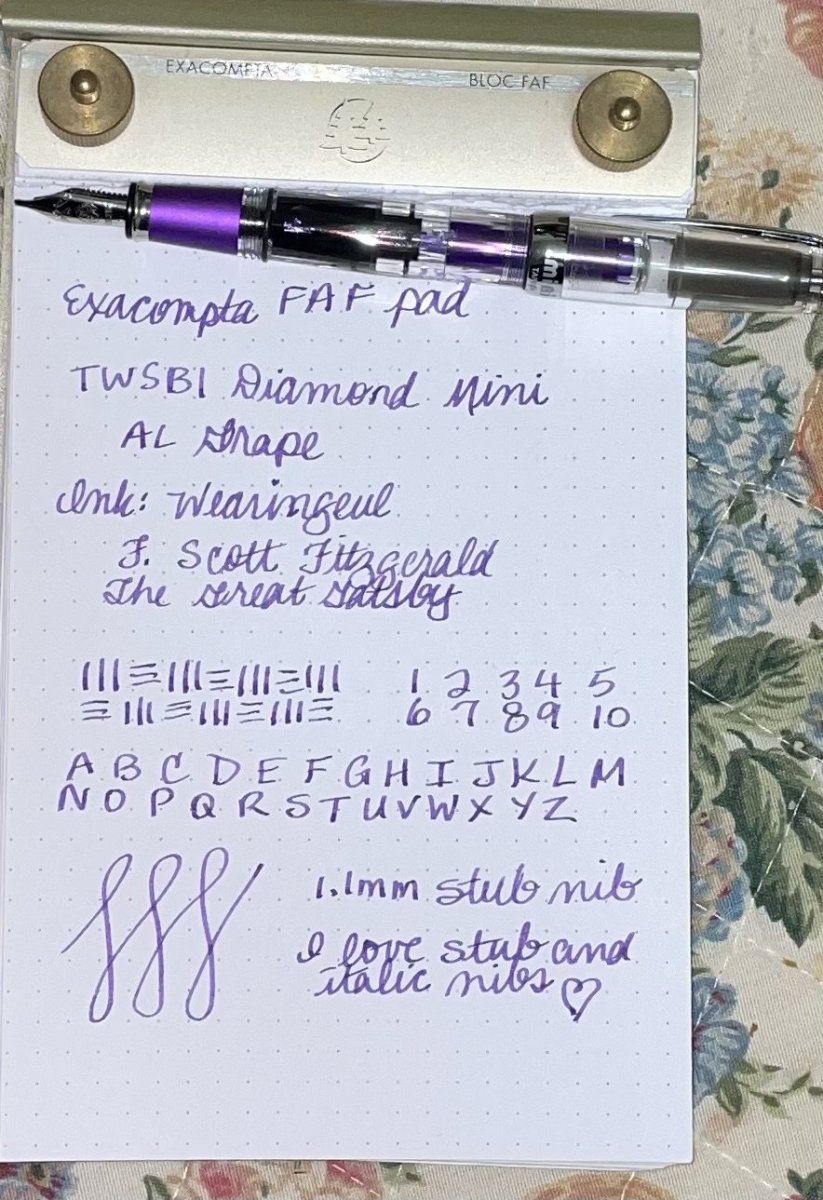 EXACOMPTA BLOC FAF
Exacompta FAF pad
TWSBI Diamond Mini
AL Grape
Ink: Wearingeul
F. Scott Fitzgerald
The Great Gatsby
1 2 3 4 5
6 7 8 9 10
A B C D E F G H I J K L M
N O P Q R S T U V W X Y Z
1.1mm stub nib
I love stub and
italic nibs